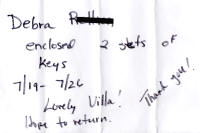 Debra
enclosed 2 sets of
keys
7/19- 7/26
Lovely Villa!
Hope to return.
Thank you!